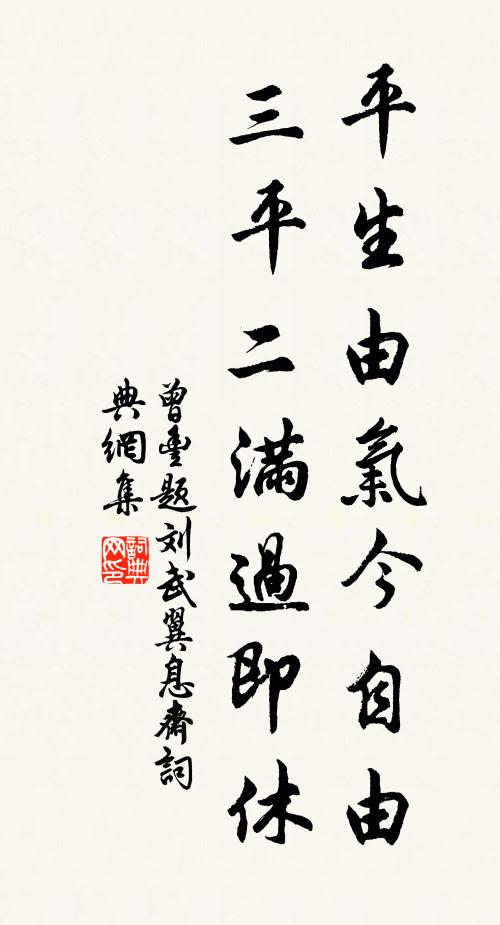 平生由氣今自由
三平二滿過即休
曾豐題刘武翼息齋詞
典網集
詞典网印